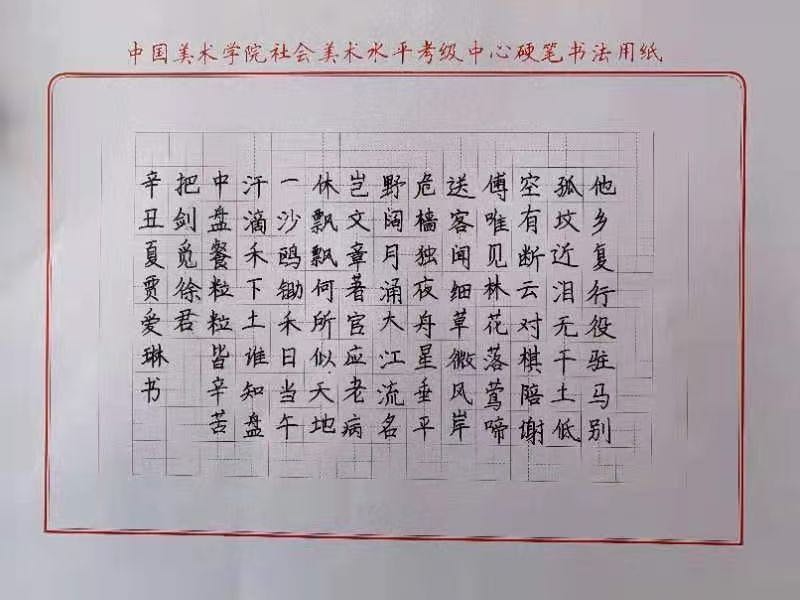 中国美术学院社会美术水平考级中心硬笔书法用纸
他乡复行役驻马别
孤坟近泪无干土低
空有断云对棋陪谢
傅唯见林花落莺啼
送客闻细草微风岸
危樯独夜舟星垂平
野阔月涌大江流名
岂文章著官应老病
休飘飘何所似天地
一沙鸥锄禾日当午
汗滴禾下土谁知盘
中盘餐粒粒皆辛苦
把剑觅徐君
辛丑夏贾爱琳书